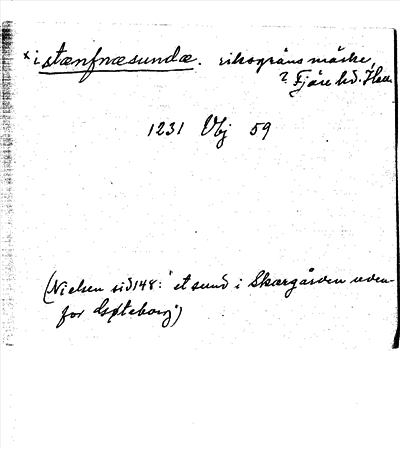 × i stænfnæsundæ. riksgränsmärke,
? Fjäre hd. Hall.
1231 Vbj 59
(Nielsen sid 148: "et sund i Skærgården uden-
for Gøteborg")